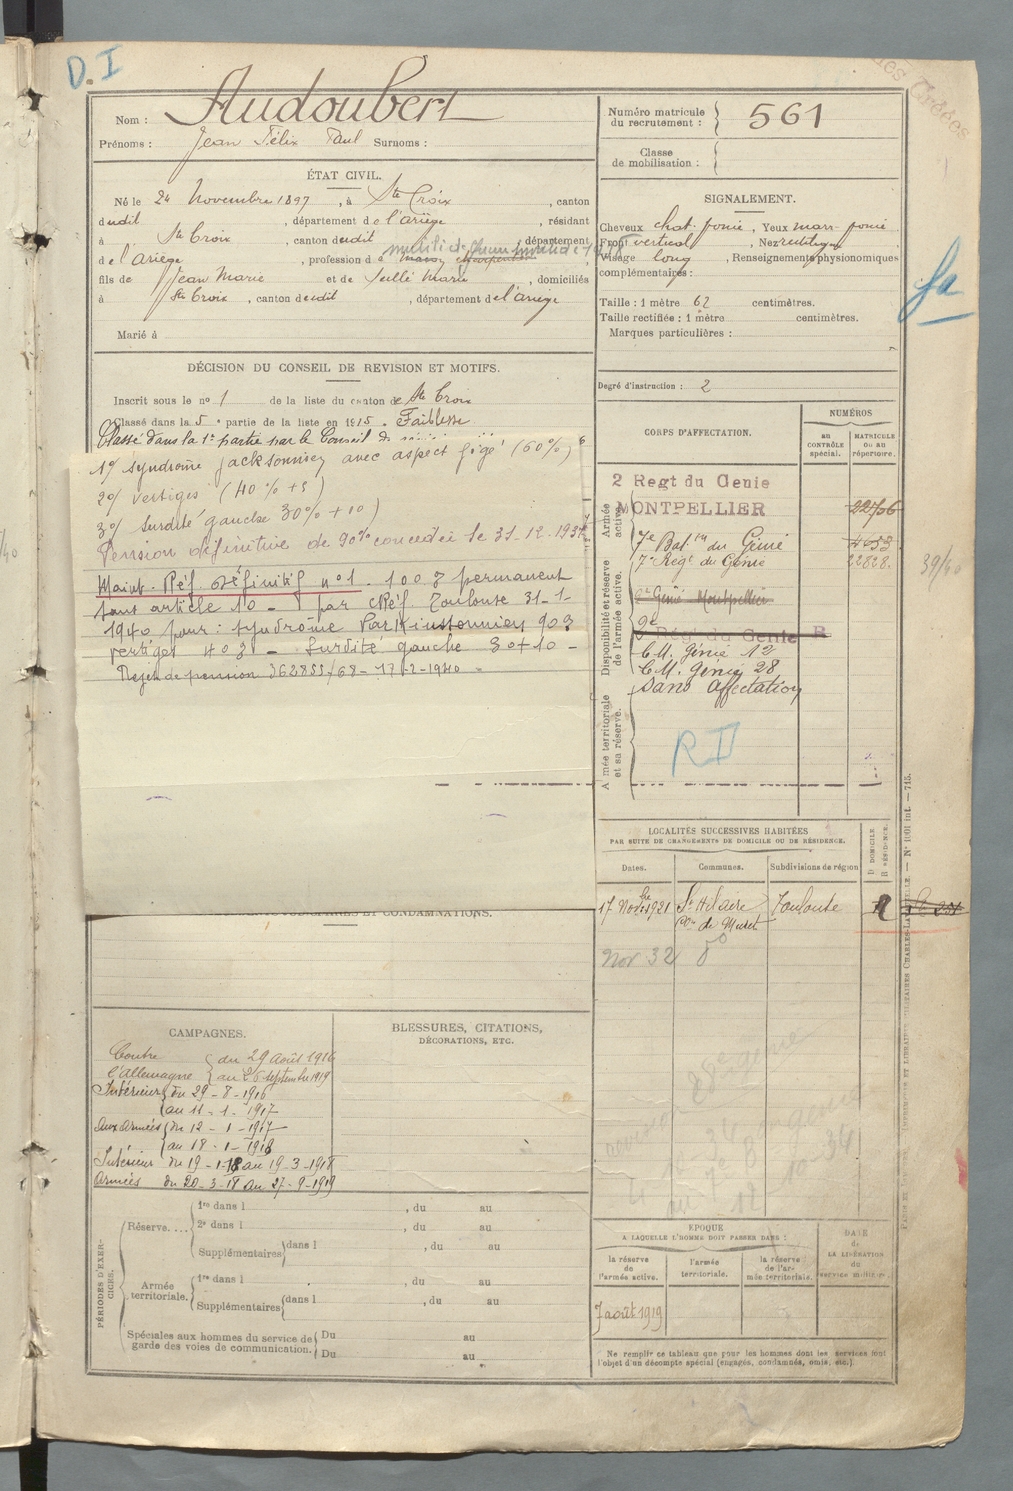 D. I
Nom : Audoubert
Prénoms : Jean Félix Paul Surnoms :
Numéro matricule du recrutement : 561
Classe de mobilisation :
ÉTAT CIVIL.
Né le 24 Novembre 1897, à Ste Croix, canton
dudit, département de l'ariège, résidant
à Ste Croix, canton dudit, département
de l'ariège, profession d
fils de Jean Marie et de Sullé Marie domiciliés
à Ste Croix, canton dudit, département de l'ariège
Marié à
SIGNALEMENT.
Cheveux chat. foncé, Yeux marr. foncé
Front vertical, Nez rectiligne
Visage long, Renseignements physionomiques
complémentaires :
Taille : 1 mètre 62 centimètres.
Taille rectifiée : 1 mètre centimètres.
Marques particulières :
fa
Degré d'instruction : 2
DÉCISION DU CONSEIL DE REVISION ET MOTIFS.
Inscrit sous le no 1 de la liste du canton de Ste Croix
Classé dans la 5e partie de la liste en 1915. Faiblesse
Classé dans la 1e partie par le Conseil de
1o/ syndrome jacksonnien avec aspect figé (60%)
2o/ vertiges (40 % +5)
3o/ surdité gauche 30% + 10)
Pension définitive de 90% concédée le 31.12.193
Maint. Réf. Définitif no 1. 100 % permanent
sans article 10 - par CRéf. Toulouse 31-1-
1940 pour : syndrome Parkinsonnien 90%
vertiges 40% - Surdité gauche 30+10 -
Rejet de pension 362855/68 - 17-2-1940 -
CORPS D'AFFECTATION.
NUMÉROS
au CONTRÔLE spécial.
MATRICULE ou au répertoire.
Armée active.
2 Regt du Genie
MONTPELLIER 22706
7e Batn du Génie 4053
7e Regt du Génie 22828.
Disponibilité et réserve de l'armée active.
2e Génie Montpellier
2e Régt du Genie R
C.M. Génie 12
C.M. Génie 28
Sans affectation
Armée territoriale et sa réserve.
R D
39/40
LOCALITÉS SUCCESSIVES HABITÉES
PAR SUITE DE CHANGEMENTS DE DOMICILE OU DE RÉSIDENCE.
Dates. Communes. Subdivisions de région
D DOMICILE R RÉSIDENCE.
17 Novbre 1921 St Hilaire Toulouse R
Con de Muret
Nov 32 do
ET CONDAMNATIONS.
CAMPAGNES.
Contre l'allemagne
du 29 Août 1916
au 26 septembre 1919
Intérieur du 29-8-1916
au 11-1-1917
aux armées du 12-1-1917
au 18-1-1918
Intérieur du 19-1-18 au 19-3-1918
armées du 20-3-18 au 27-9-1919
BLESSURES, CITATIONS,
DÉCORATIONS, ETC.
PÉRIODES D'EXERCICES.
Réserve....
1re dans l , du au
2e dans l , du au
Supplémentaires dans l , du au
Armée territoriale.
1re dans l , du au
Supplémentaires dans l , du au
Spéciales aux hommes du service de garde des voies de communication.
Du au
Du au
28e génie
ÉPOQUE
A LAQUELLE L'HOMME DOIT PASSER DANS :
la réserve de l'armée active.
l'armée territoriale.
la réserve de l'armée territoriale.
DATE de LA LIBÉRATION du service militaire.
7 août 1919
Ne remplir ce tableau que pour les hommes dont les services font
l'objet d'un décompte spécial (engagés, condamnés, omis, etc.).